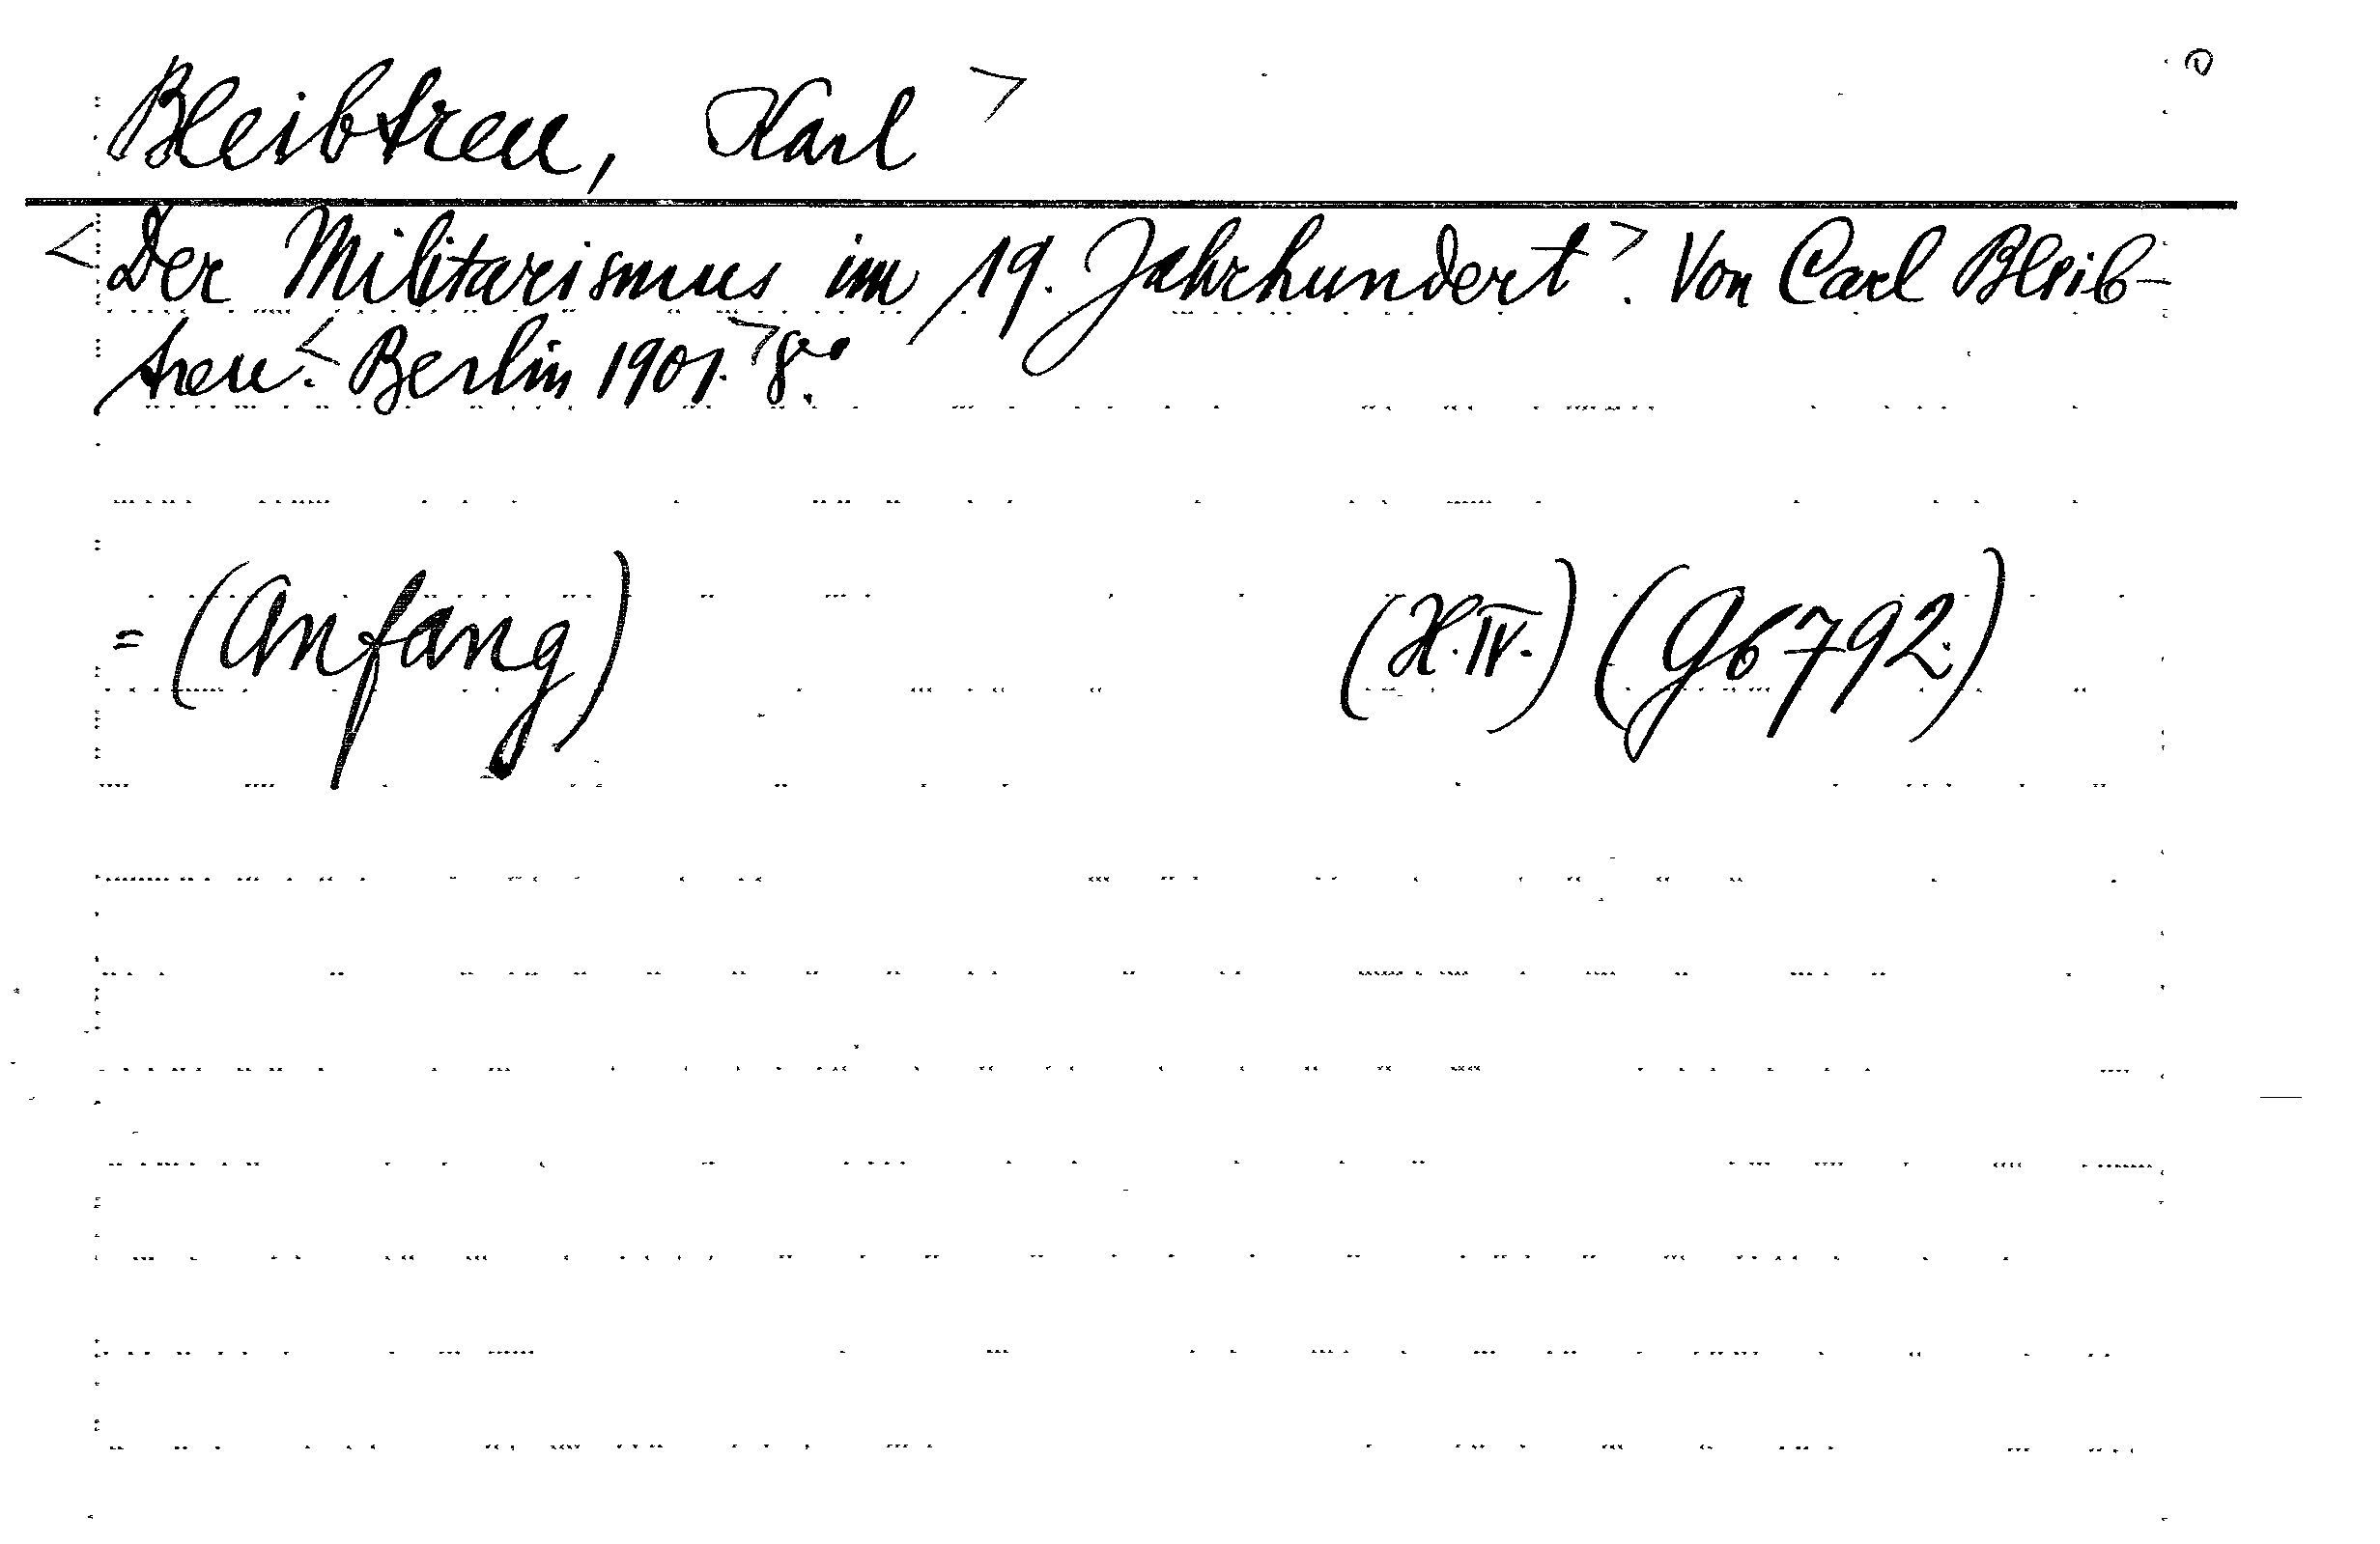 Bleibtreu, Karl >
<Der Militarismus im 19. Jahrhundert>. Von Carl Bleib-
treu. <Berlin 1901.> 8°.
= (Anfang) (H.IV.) (G6792.)